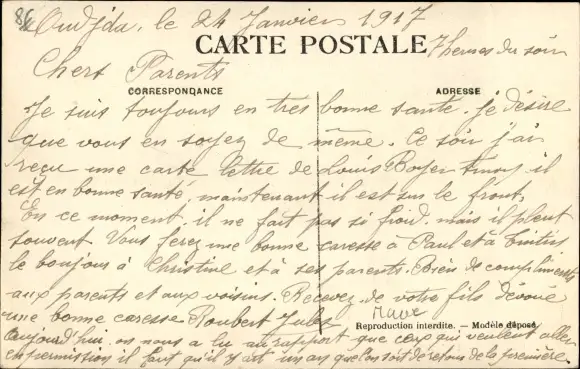 86
Oudjda, le 24 Janvier 1917
CARTE POSTALE
7 heures du soir
Chers Parents
CORRESPONDANCE
ADRESSE
Je suis toujours en tres bonne sante. je désire
que vous en soyez de même. Ce soir j'ai
reçu une carte lettre de Louis Boyer il
est en bonne santé, maintenant il est sur le front.
En ce moment il ne fait pas si froid. mais il pleut
souvent. Vous ferez une bonne caresse à Paul et à
le bonjour à Christine et à ses parents. Bien de compliments
aux parents et aux voisins. Recevez de votre fils dévoué
une bonne caresse Roubert Jules
Reproduction interdite. — Modèle déposé
aujourd'hui on nous a lu au rapport que ceux qui veulent aller
en permission il faut qu'il y ait un an que l'on soit de retour de la première.